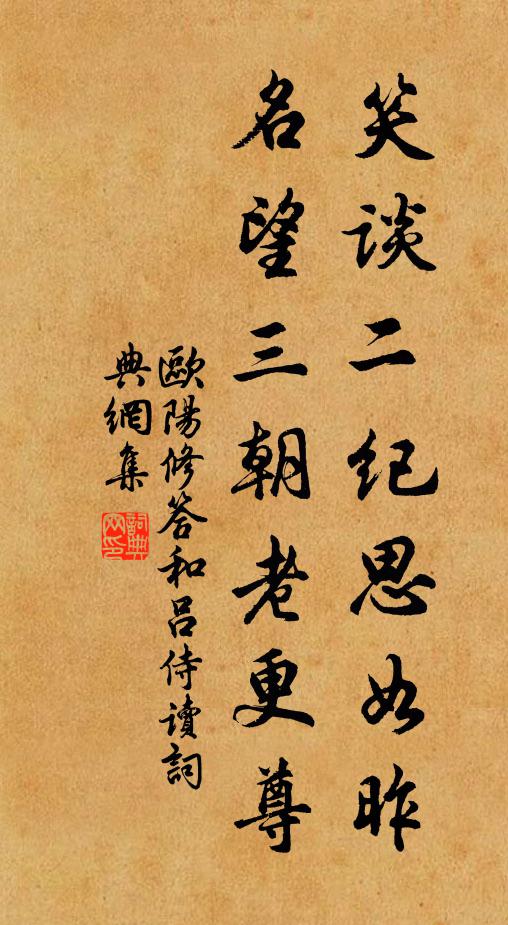 笑談二纪思如昨
名望三朝老更尊
歐陽修答和呂侍讀詞
典網集
詞典
网印